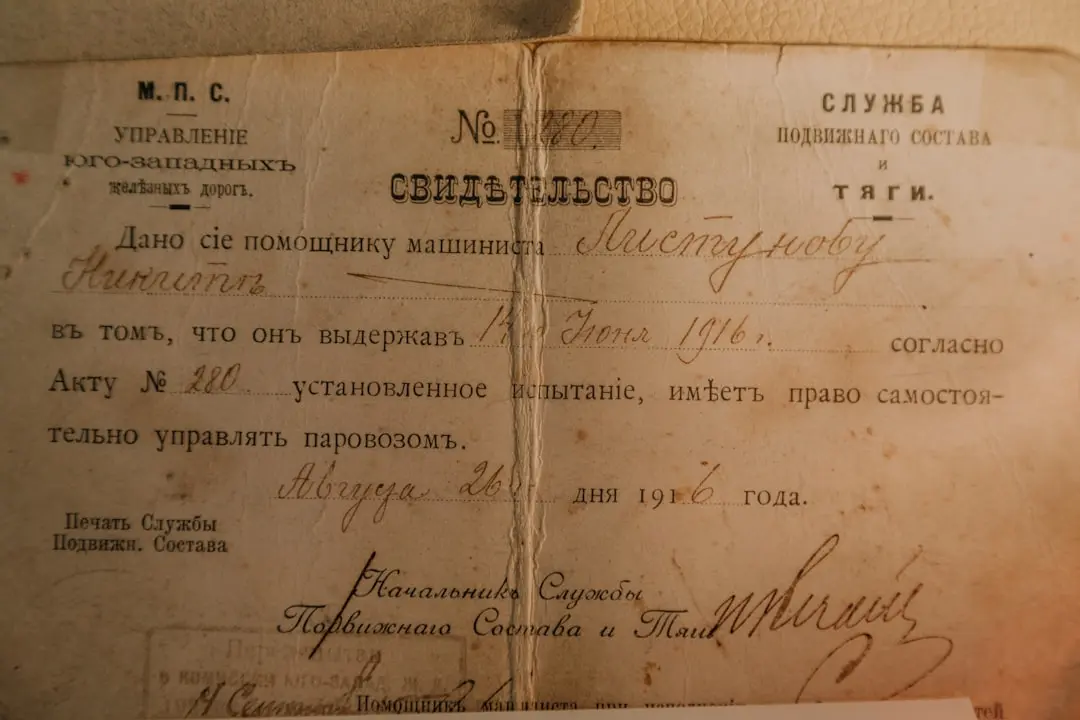 М. П. С.
УПРАВЛЕНІЕ
ЮГО-ЗАПАДНЫХЪ
желѣзныхъ дорогъ.
№ 280.
СВИДѢТЕЛЬСТВО
СЛУЖБА
ПОДВИЖНАГО СОСТАВА
и
ТЯГИ.
Дано сіе помощнику машиниста Листунову
Никитѣ
въ томъ, что онъ выдержавъ 14го Іюня 1916 г. согласно
Акту № 280. установленное испытаніе, имѣетъ право самостоя-
тельно управлять паровозомъ.
Августа 26 дня 1916 года.
Печать Службы
Подвижн. Состава
Начальникъ Службы
Подвижнаго Состава и Тяги
Помощникъ машиниста при